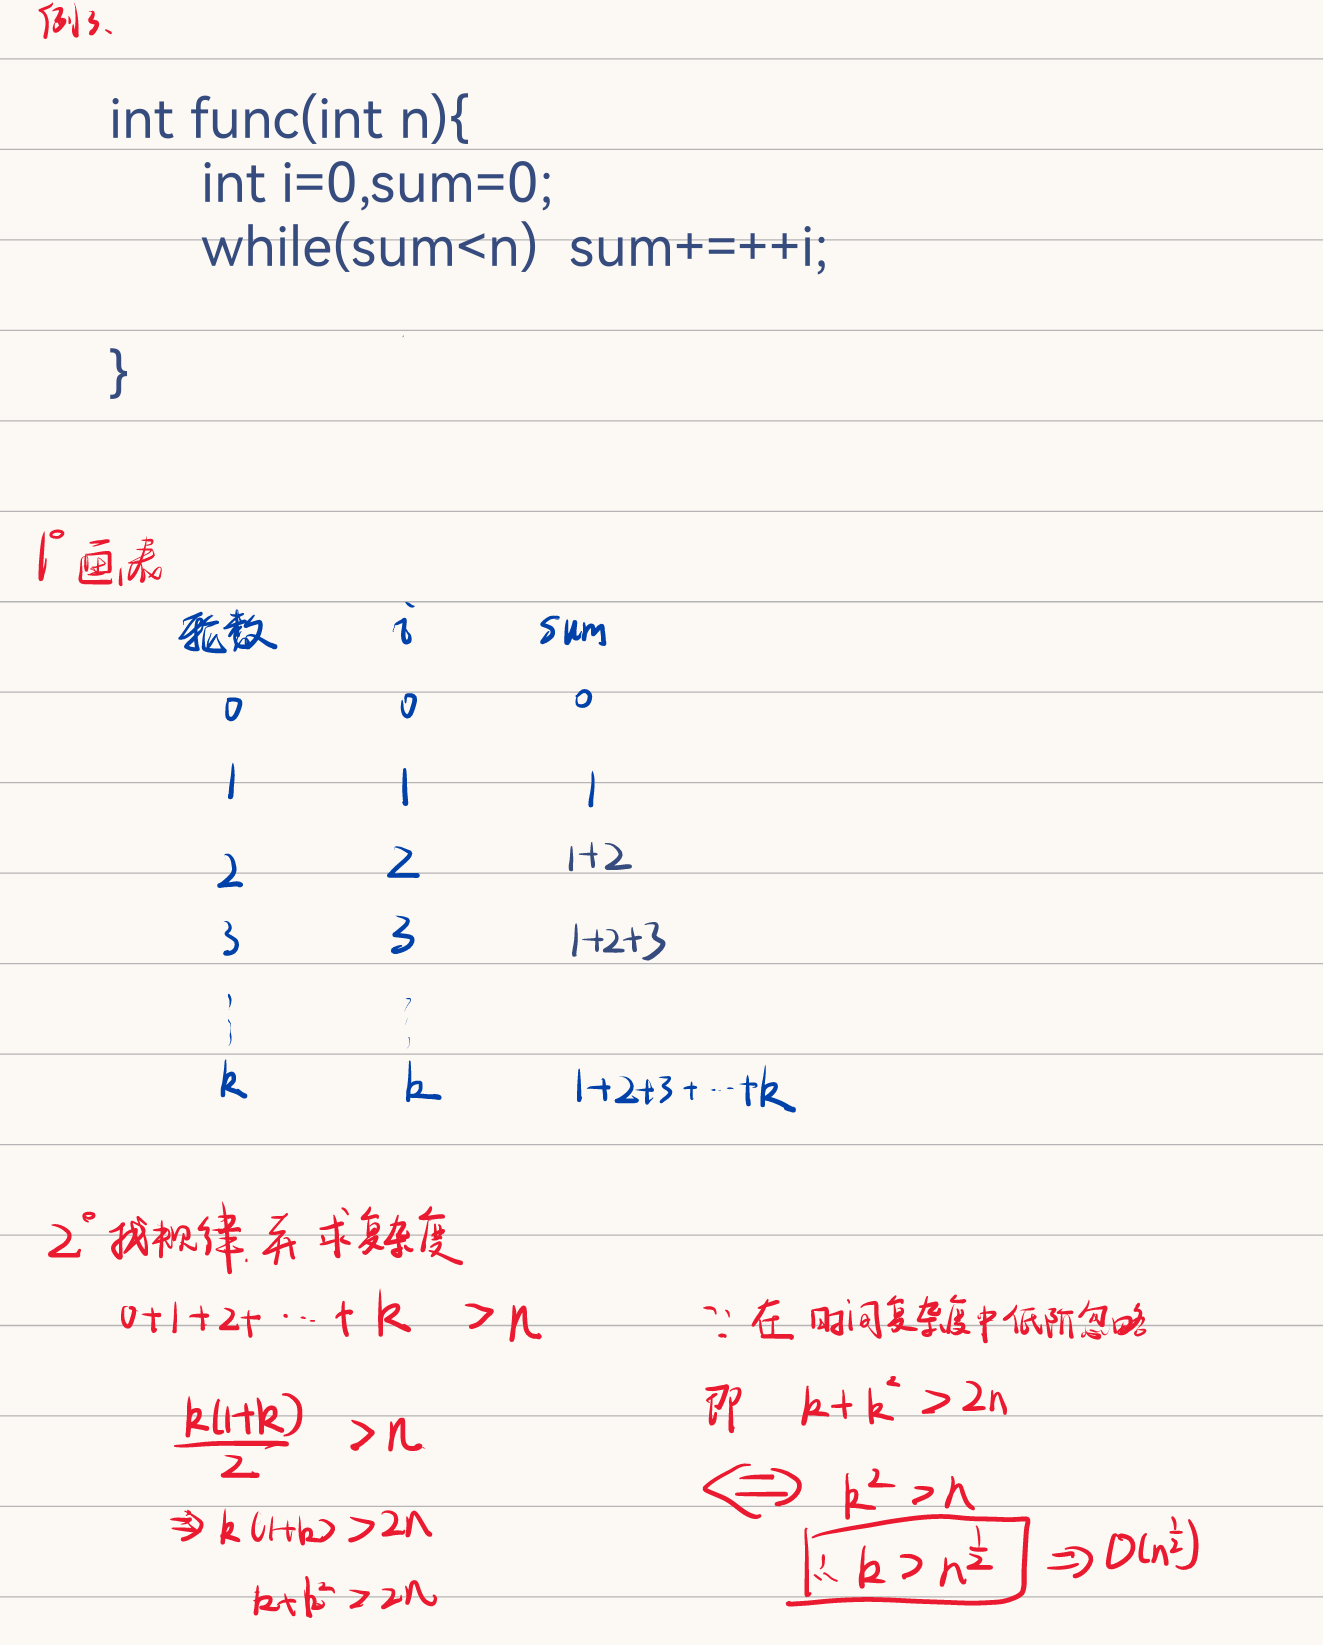 例3、
int func(int n){
int i=0,sum=0;
while(sum<n) sum+=++i;
}
1° 画表
轮数 i sum
0 0 0
1 1 1
2 2 1+2
3 3 1+2+3
⋮ ⋮
k k 1+2+3+⋯+k
2° 找规律并求复杂度
0+1+2+⋯+k >n
k(1+k)/2 >n
⇒ k(1+k)>2n
k+k²>2n
∵在时间复杂度中低阶忽略
即 k+k²>2n
⟺ k²>n
∴ k>n^½ ⇒ O(n^½)